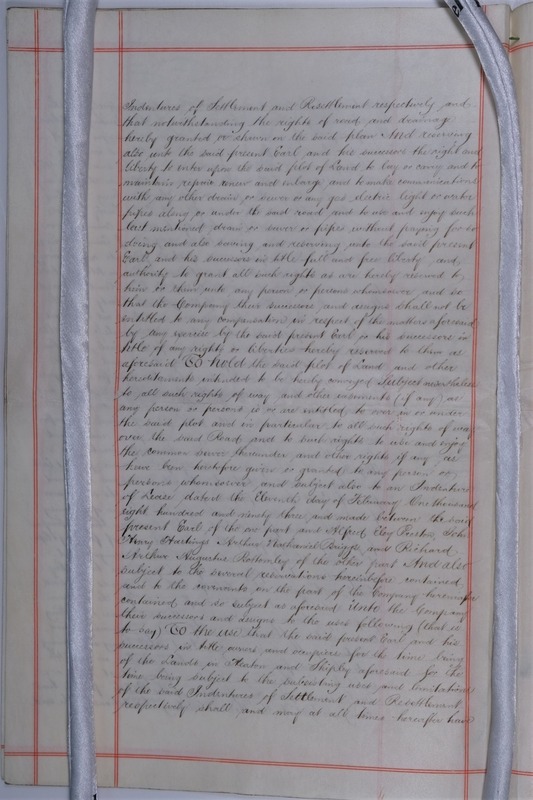 Indentures of Settlement and Resettlement respectively and
that notwithstanding the rights of road and drainage
hereby granted or shewn on the said plan And reserving
also unto the said present Earl and his successors the right and
liberty to enter upon the said plot of Land to lay or carry and to
maintain repair renew and enlarge and to make communications
with any other drains or sewer or any gas electric light or water
pipes along or under the said road and to use and enjoy such
last mentioned drain or sewer or pipes without paying for so
doing and also saving and reserving unto the said present
Earl and his successors in title full and free liberty and
authority to grant all such rights as are hereby reserved to
him or them unto any person or persons whomsoever and so
that the Company their successors and assigns shall not be
entitled to any compensation in respect of the matters aforesaid
by any exercise by the said present Earl or his successors in
title of any rights or liberties hereby reserved to them as
aforesaid To hold the said plot of Land and other
hereditaments intended to be hereby conveyed Subject nevertheless
to all such rights of way and other easements (if any) as
any person or persons is or are entitled to over in or under
the said plot and in particular to all such rights of way
over the said Road and to such rights to use and enjoy
the common sewer thereunder and other rights if any as
have been heretofore given or granted to any person or
persons whomsoever and subject also to an Indenture
of Lease dated the Eleventh day of February One thousand
eight hundred and ninety three and made between the said
present Earl of the one part and Alfred Eley Preston John
Henry Hastings Arthur Nathaniel Briggs and Richard
Arthur Augustus Bottomley of the other part And also
subject to the several reservations hereinbefore contained
and to the covenants on the part of the Company hereinafter
contained and so subject as aforesaid Unto the Company
their successors and assigns to the uses following (that is
to say) To the use that the said present Earl and his
successors in title owners and occupiers for the time being
of the Lands in Heaton and Shipley aforesaid for the
time being subject to the subsisting uses and limitations
of the said Indentures of Settlement and Resettlement
respectively shall and may at all times hereafter have